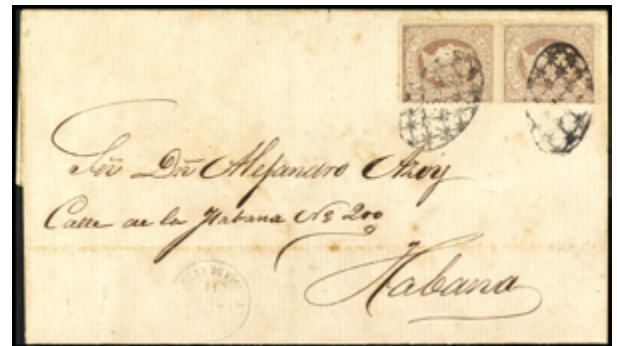 Sor Dn Alejandro Azoy
Calle de la Habana No 200
Habana